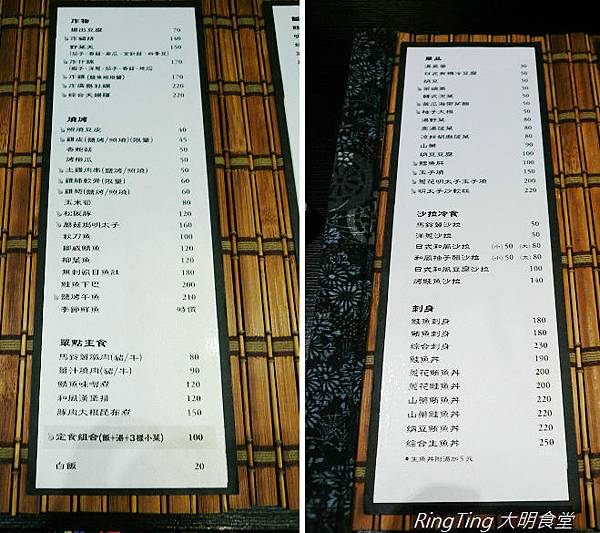 炸物
揚出豆腐 70
炸豬排 140
野菜天 150
(茄子·香菇·南瓜·金針菇·四季豆)
炸什錦 170
(椒子·洋蔥·茄子·香菇·地瓜)
170
炸廣島牡蠣 220
綜合天婦羅 220
燒烤
照燒豆皮 40
雞皮(鹽烤/照燒)(限量) 45
杏鮑菇 50
烤櫛瓜 50
土雞肉串(鹽烤/照燒) 50
雞腿軟骨(限量) 60
雞翅(鹽烤/照燒) 60
玉米筍 80
松阪豚 120
蘑菇焗明太子 160
秋刀魚 100
挪威鯖魚 120
柳葉魚 120
無刺虱目魚肚 180
鮭魚下巴 200
鹽烤午魚 210
季節鮮魚 時價
單點主食
馬鈴薯燉肉(豬/牛) 80
薑汁燒肉(豬/牛) 90
鯖魚味噌煮 120
和風漢堡排 120
豚肉大根昆布煮 150
定食組合(飯+湯+3樣小菜) 100
白飯 20
單品
漬菜 30
日式有機冷豆腐 50
納豆 50
50
韓式泡菜 50
黃瓜海帶芽醋 50
柚子大根 50
湯野菜 80
高湯菠菜 80
涼拌胡麻菠菜 80
山藥 90
納豆豆腐 100
鱈魚肝 100
玉子燒 150
蔥花明太子玉子燒 200
明太子沙軟絲 220
沙拉冷食
馬鈴薯沙拉 50
洋蔥沙拉 50
日式和風沙拉 (小) 50 (大) 80
和風柚子醋沙拉 (小) 50 (大) 80
日式和風豆腐沙拉 100
烤鮭魚沙拉 140
刺身
鮭魚刺身 180
鮪魚刺身 180
綜合刺身 230
鮭魚丼 190
蔥花鮪魚丼 200
蔥花鮭魚丼 200
山藥鮪魚丼 220
山藥鮭魚丼 220
納豆鮪魚丼 220
綜合生魚丼 250
●生魚丼附湯加5元
RingTing 大明食堂